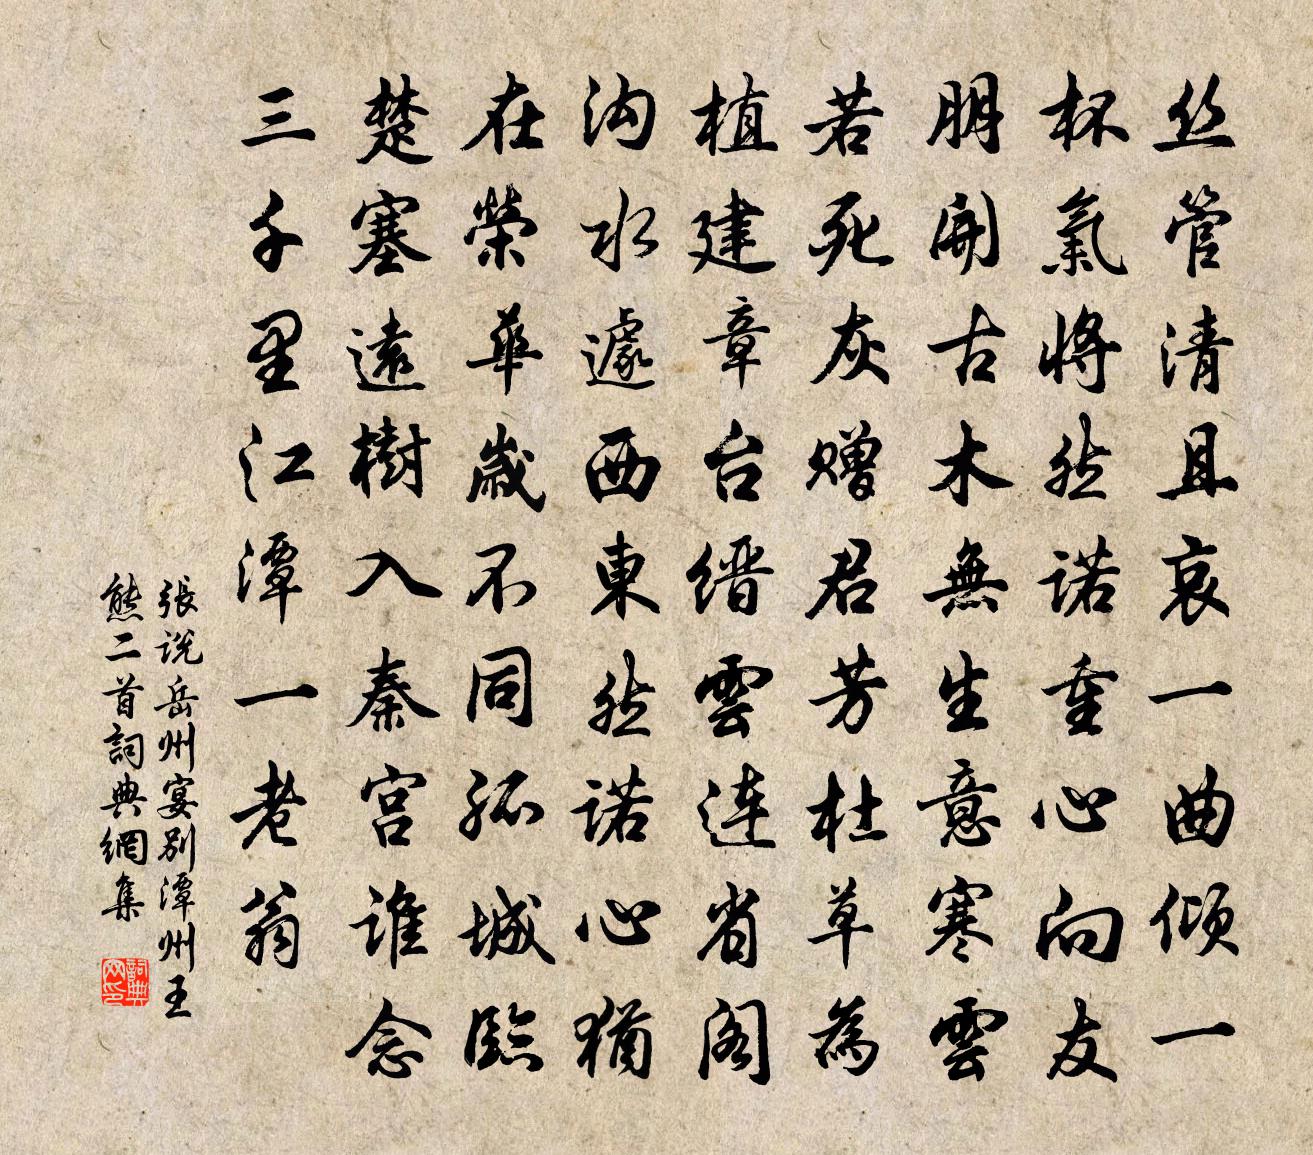 丝管清且哀一曲倾一
杯氣將然诺重心向友
朋開古木無生意寒雲
若死灰赠君芳杜草為
植建章台缙雲連省阁
沟水遽西東然诺心猶
在榮華歲不同孤城臨
楚塞遠樹入秦宫谁念
三千里江潭一老翁
張説岳州宴别潭州王
熊二首詞典網集
詞典网印